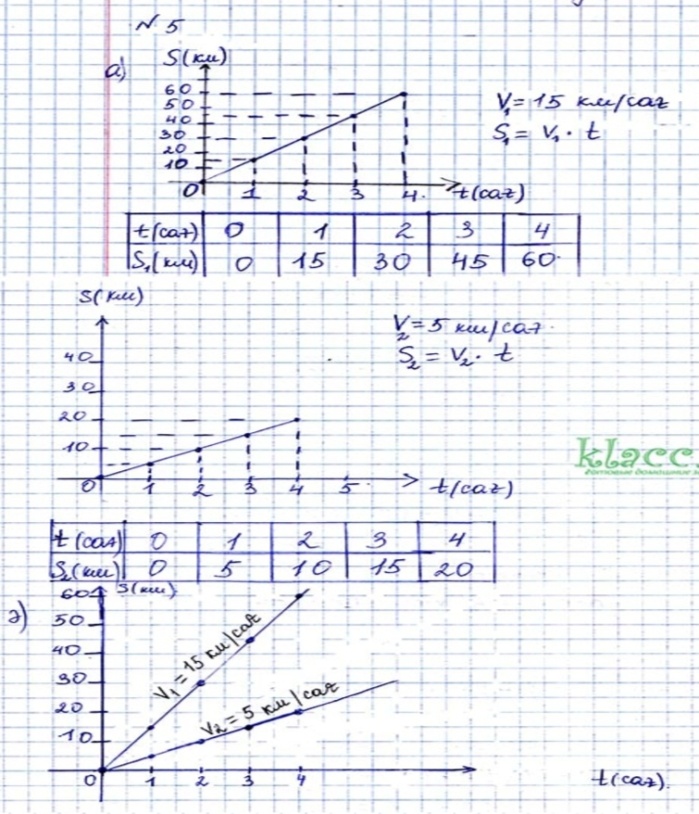 № 5
а) S(км)
60
50
40
30
20
10
0 1 2 3 4 t(сағ)
V₁ = 15 км/сағ
S₁ = V₁ · t
t(сағ) 0 1 2 3 4
S₁(км) 0 15 30 45 60
S(км)
40
30
20
10
0 1 2 3 4 5 t(сағ)
V₂ = 5 км/сағ
S₂ = V₂ · t
klacc.
готовые домашние
t(сағ) 0 1 2 3 4
S₂(км) 0 5 10 15 20
ә) 60 S(км)
50
40
30
20
10
V₁ = 15 км/сағ
V₂ = 5 км/сағ
0 1 2 3 4 t(сағ).